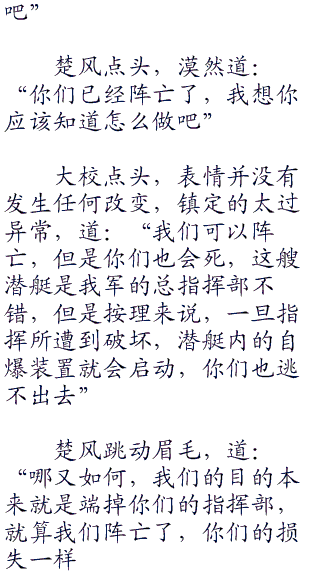 吧”
楚风点头，漠然道：
“你们已经阵亡了，我想你
应该知道怎么做吧”
大校点头，表情并没有
发生任何改变，镇定的太过
异常，道：“我们可以阵
亡，但是你们也会死，这艘
潜艇是我军的总指挥部不
错，但是按理来说，一旦指
挥所遭到破坏，潜艇内的自
爆装置就会启动，你们也逃
不出去”
楚风跳动眉毛，道：
“哪又如何，我们的目的本
来就是端掉你们的指挥部，
就算我们阵亡了，你们的损
失一样